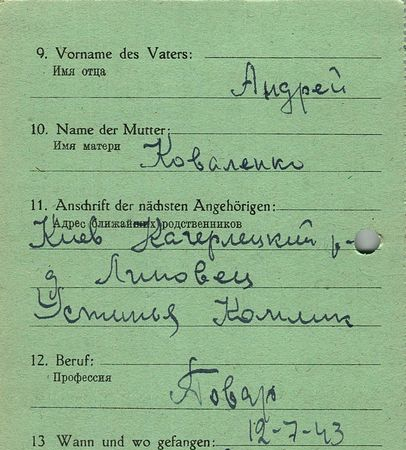 9. Vorname des Vaters:
Имя отца
Андрей
10. Name der Mutter:
Имя матери
Коваленко
11. Anschrift der nächsten Angehörigen:
Адрес ближайших родственников
Киев Кагерлецкий р-
д Липовец
Устинья Комлик
12. Beruf:
Профессия
Повар
12-7-43
13 Wann und wo gefangen: